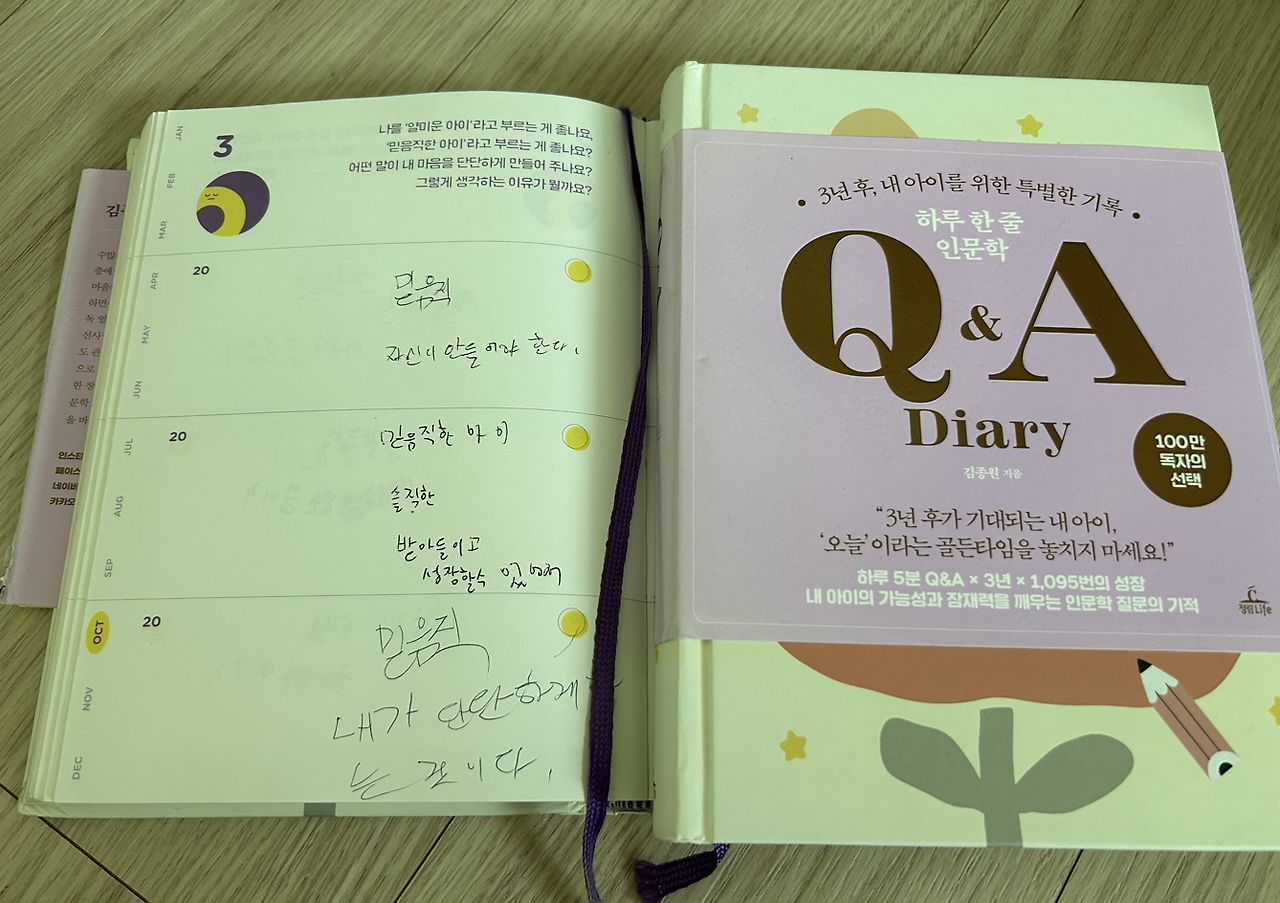 JAN
FEB
MAR
APR
MAY
JUN
JUL
AUG
SEP
OCT
NOV
DEC
3
나를 '얄미운 아이'라고 부르는 게 좋나요,
'믿음직한 아이'라고 부르는 게 좋나요?
어떤 말이 내 마음을 단단하게 만들어 주나요?
그렇게 생각하는 이유가 뭘까요?
20
믿음직
자신이 만들어야 한다.
20
믿음직한 아이
솔직한
받아들이고
성장할수 있
20
믿음직
내가 단단하게
는 이다.
인스타
페이스
네이버
카카오
3년 후, 내 아이를 위한 특별한 기록
하루 한 줄
인문학
Q & A
Diary
김종원 지음
100만
독자의
선택
"3년 후가 기대되는 내 아이,
'오늘'이라는 골든타임을 놓치지 마세요!"
하루 5분 Q&A × 3년 × 1,095번의 성장
내 아이의 가능성과 잠재력을 깨우는 인문학 질문의 기적
청림Life